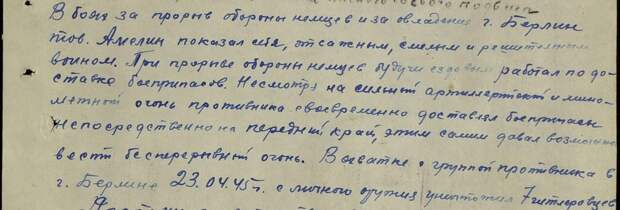 В боях за прорыв обороны немцев и за овладение г. Берлин
тов. Амелин показал себя, отважным, смелым и решительным
воином. При прорыве обороны немцев будучи ездовым работал по до-
ставке боеприпасов. Несмотря на сильный артиллерийский и мино-
метный огонь противника своевременно доставлял боеприпасы
непосредственно на передний край, этим самым давал возможность
вести беспрерывный огонь. В схватке с группой противника в
г. Берлине 23.04.45г. с личного оружия уничтожил 7 гитлеровцев